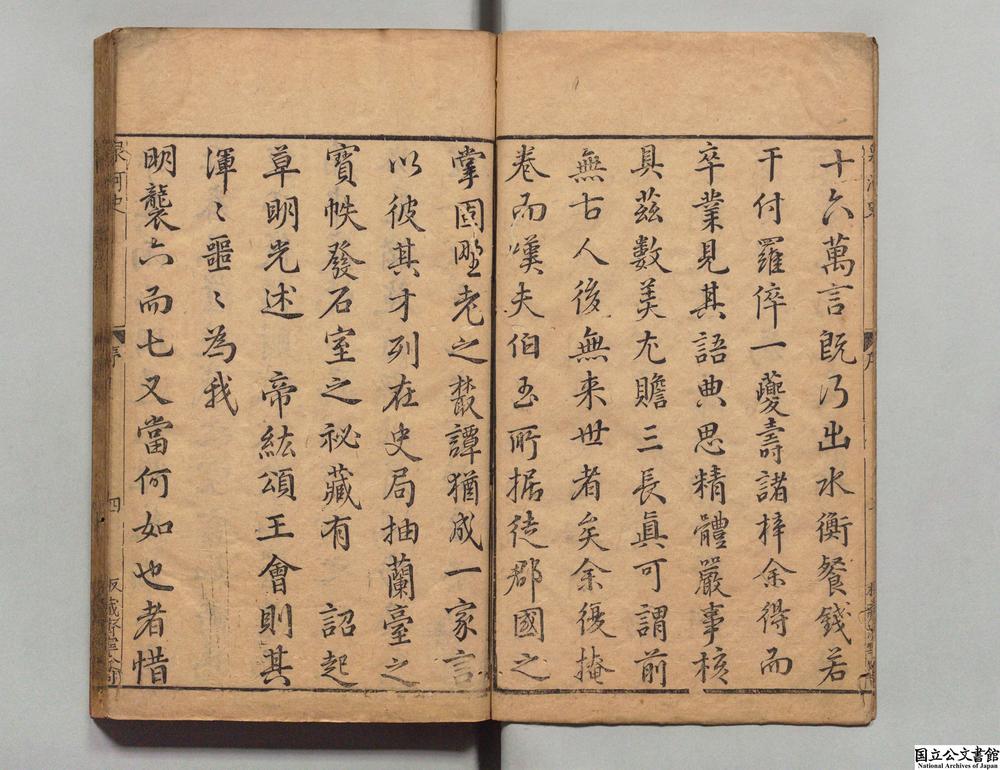 十六萬言既乃出水衡餐錢若
干付羅倅一夔壽諸梓余得而
卒業見其語典思精體嚴事核
具茲數美尤贍三長眞可謂前
無古人後無来世者矣余復掩
卷而嘆夫伯玉所据徒郡國之
掌固埜老之叢譚猶成一家言
以彼其才列在史局抽蘭臺之
寳帙發石室之秘藏有 詔起
草明光述 帝紘頌王會則其
渾〻噩〻為我
明襲六而七又當何如也者惜
泉河史
序
四
国立公文書館
National Archives of Japan